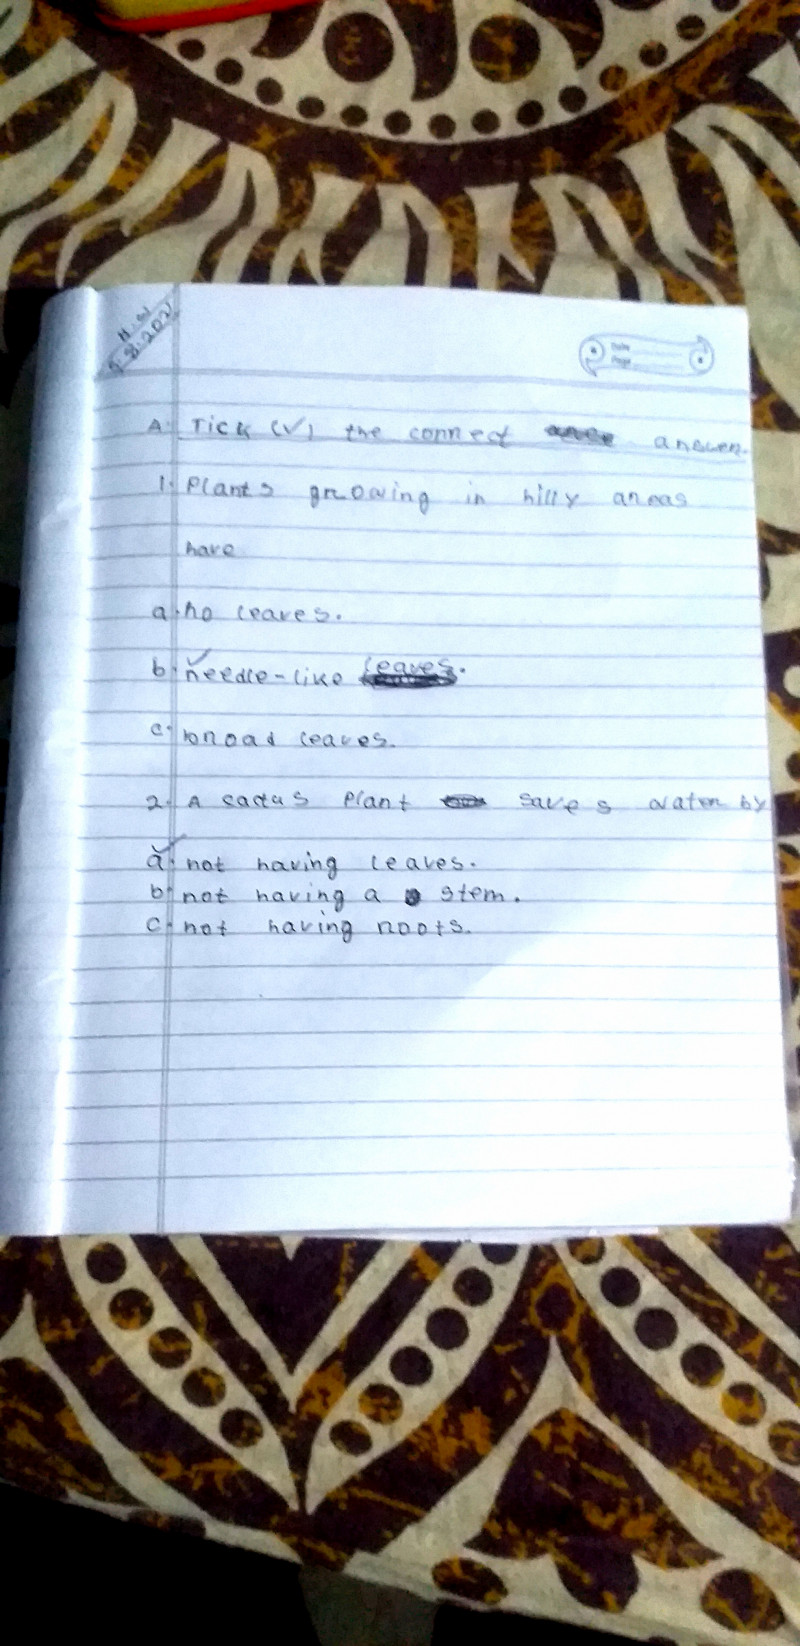 H.W
5.8.2021
Date
Page
A. Tick (✓) the correct answer.
1. Plants growing in hilly areas
have
a. no leaves.
b. needle-like leaves.
c. broad leaves.
2. A cactus plant saves water by
a. not having leaves.
b. not having a stem.
c. not having roots.